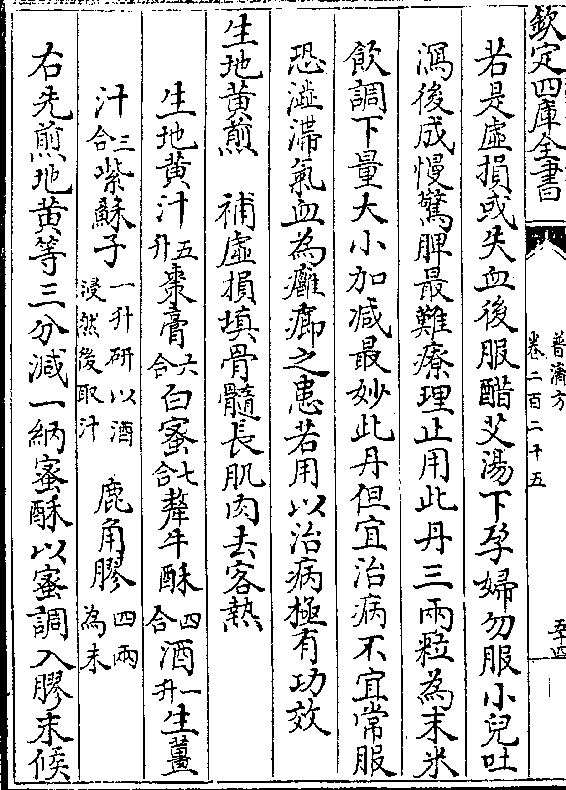 欽定四庫全書
普濟方
卷二百二十五
五十四
若是虛損或失血後服醋艾湯下孕婦勿服小兒吐
瀉後成慢驚脾最難療理止用此丹三兩粒為末米
飲調下量大小加減最妙此丹但宜治病不宜常服
恐澁滯氣血為癰癤之患若用以治病極有功效
生地黄煎　補虛損填骨髓長肌肉去客熱
生地黄汁五升棗膏六合白蜜七合犛牛酥四合酒一升生薑
汁三合紫蘇子一升研以酒浸然後取汁　鹿角膠四兩為末
右先煎地黄等三分減一納蜜酥以蜜調入膠末候